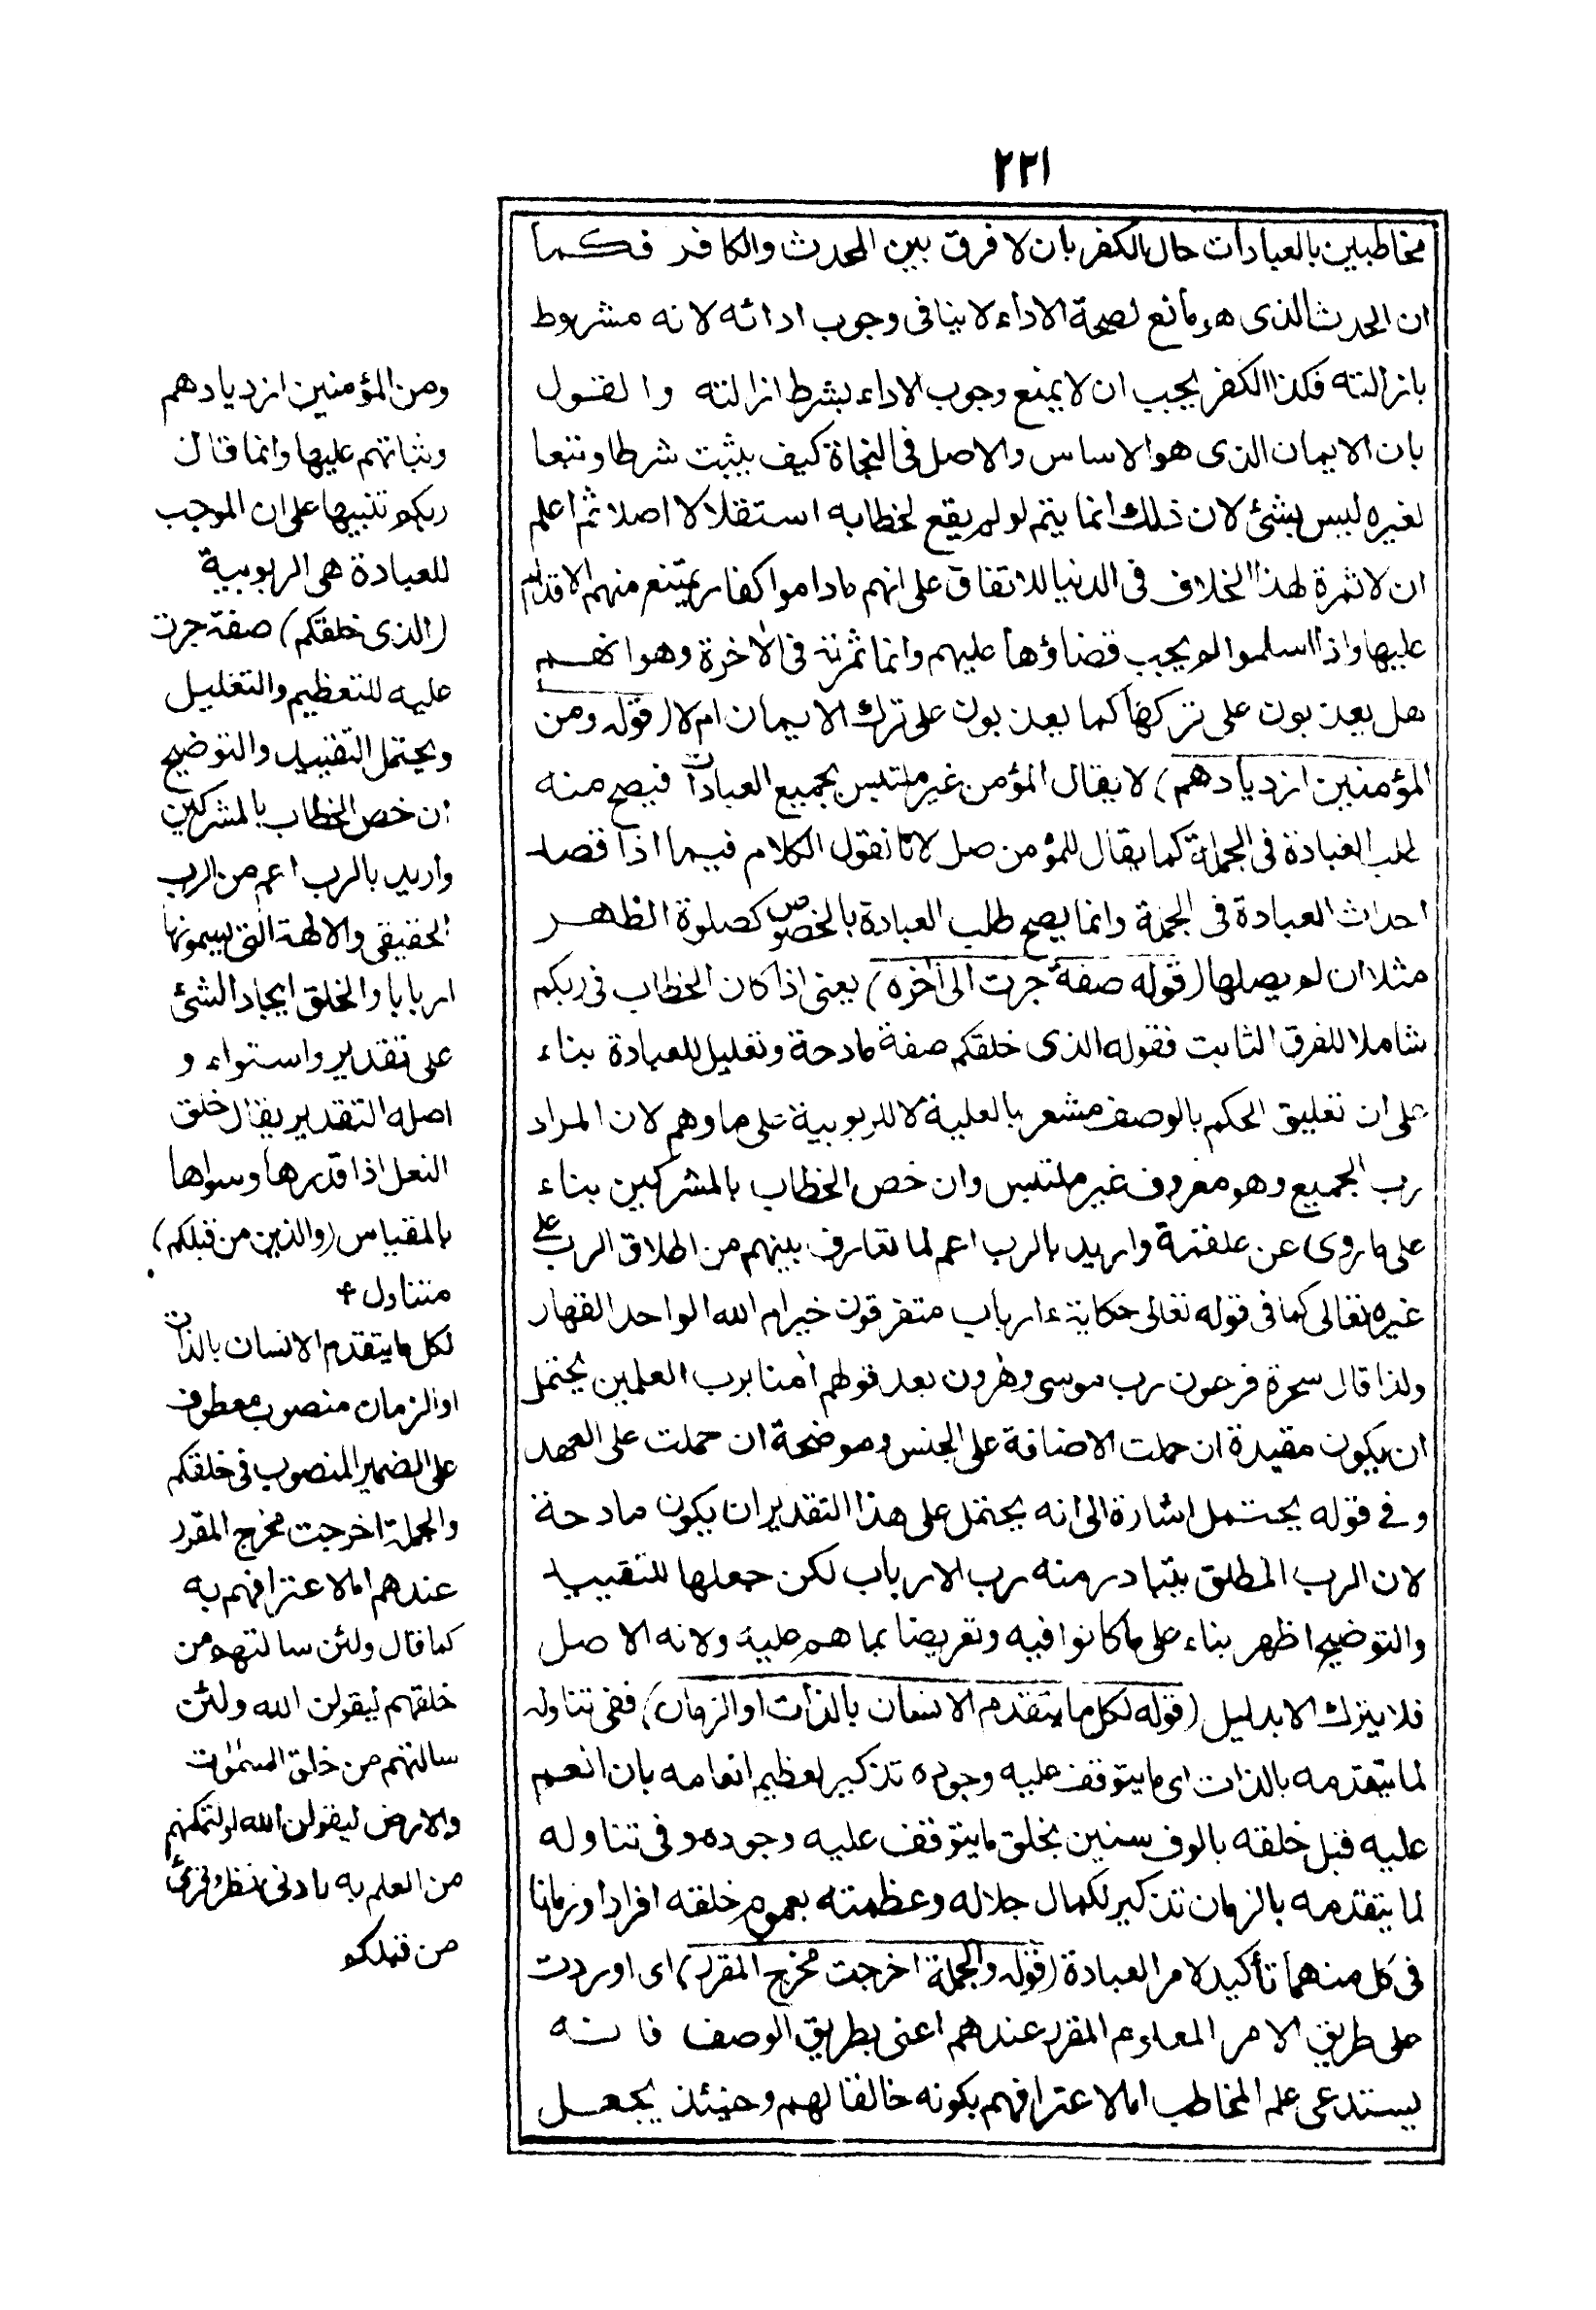 ٢٢١
مخاطبين بالعبادات حال الكفر بان لا فرق بين المحدث والكافر فكما
ان الحدث الذى هو مانع لصحة الاداء لا ينافى وجوب ادائه لانه مشروط
بازالته فكذا الكفر يجب ان لا يمنع وجوب الاداء بشرط ازالته والقول
بان الايمان الذى هو الاساس والاصل فى النجاة كيف يثبت شرطا وتبعا
لغيره ليس بشئ لان ذلك انما يتم لو لم يقع لخطابه استقلالا اصلا ثم اعلم
ان لا ثمرة لهذا الخلاف فى الدنيا للاتفاق على انهم ماداموا كفار يمتنع منهم الاقدام
عليها واذا اسلموا لم يجب قضاؤها عليهم وانما ثمرته فى الاخرة وهو انهم
هل يعذبون على تركها كما يعذبون على ترك الايمان ام لا (قوله ومن
المؤمنين ازديادهم) لا يقال المؤمن غير ملتبس بجميع العبادات فيصح منه
طلب العبادة فى الجملة كما يقال للمؤمن صل لانا نقول الكلام فيما اذا قصد
احداث العبادة فى الجملة وانما يصح طلب العبادة بالخصوص كصلوة الظهر
مثلا ان لم يصلها (قوله صفة جرت الى اخره) يعنى اذا كان الخطاب فى ربكم
شاملا للفرق الثابت فقوله الذى خلقكم صفة مادحة وتعليل للعبادة بناء
على ان تعليق الحكم بالوصف مشعر بالعلية لا للربوبية على ما وهم لان المراد
رب الجميع وهو معروف غير ملتبس وان خص الخطاب بالمشركين بناء
على ما روى عن علقمة واريد بالرب اعم لما تعارف بينهم من اطلاق الرب على
غيره تعالى كما فى قوله تعالى حكاية ءارباب متفرقون خير ام الله الواحد القهار
ولذا قال سحرة فرعون رب موسى وهرون بعد قولهم امنا برب العلمين يحتمل
ان يكون مقيدة ان حملت الاضافة على الجنس وموضحة ان حملت على العهد
وفى قوله يحتمل اشارة الى انه يحتمل على هذا التقدير ان يكون مادحة
لان الرب المطلق يتبادر منه رب الارباب لكن جعلها للتقييد
والتوضيح اظهر بناء على ما كانوا فيه وتعريضا بما هم عليه ولانه الاصل
فلا يترك الا بدليل (قوله لكل ما يتقدم الانسان بالذات او الزمان) ففى تناوله
لما يتقدمه بالذات اى ما يتوقف عليه وجوده تذكير لعظيم انعامه بان انعم
عليه قبل خلقه بالوف سنين بخلق ما يتوقف عليه وجوده وفى تناوله
لما يتقدمه بالزمان تذكير لكمال جلاله وعظمته بعموم خلقه افرادا وزمانا
فى كل منهما تأكيد لامر العبادة (قوله والجملة اخرجت مخرج المقرر) اى اوردت
على طريق الامر المعلوم المقرر عندهم اعنى بطريق الوصف فانه
يستدعى علم المخاطب اما لاعترافهم بكونه خالقا لهم وحينئذ يجعل
ومن المؤمنين ازديادهم
وثباتهم عليها وانما قال
ربكم تنبيها على ان الموجب
للعبادة هى الربوبية
(الذى خلقكم) صفة جرت
عليه للتعظيم والتعليل
ويحتمل التقييد والتوضيح
ان خص الخطاب بالمشركين
واريد بالرب اعم من الرب
الحقيقى والالهة التى يسمونها
اربابا والخلق ايجاد الشئ
على تقدير واستواء و
اصله التقدير يقال خلق
النعل اذا قدرها وسواها
بالمقياس (والذين من قبلكم)
متناول
لكل ما يتقدم الانسان بالذات
او الزمان منصوب معطوف
على الضمير المنصوب فى خلقكم
والجملة اخرجت مخرج المقرر
عندهم اما لاعترافهم به
كما قال ولئن سالتهم من
خلقهم ليقولن الله ولئن
سالتهم من خلق السموت
والارض ليقولن الله او لتمكنهم
من العلم به بادنى نظر وقرئ
من قبلكم